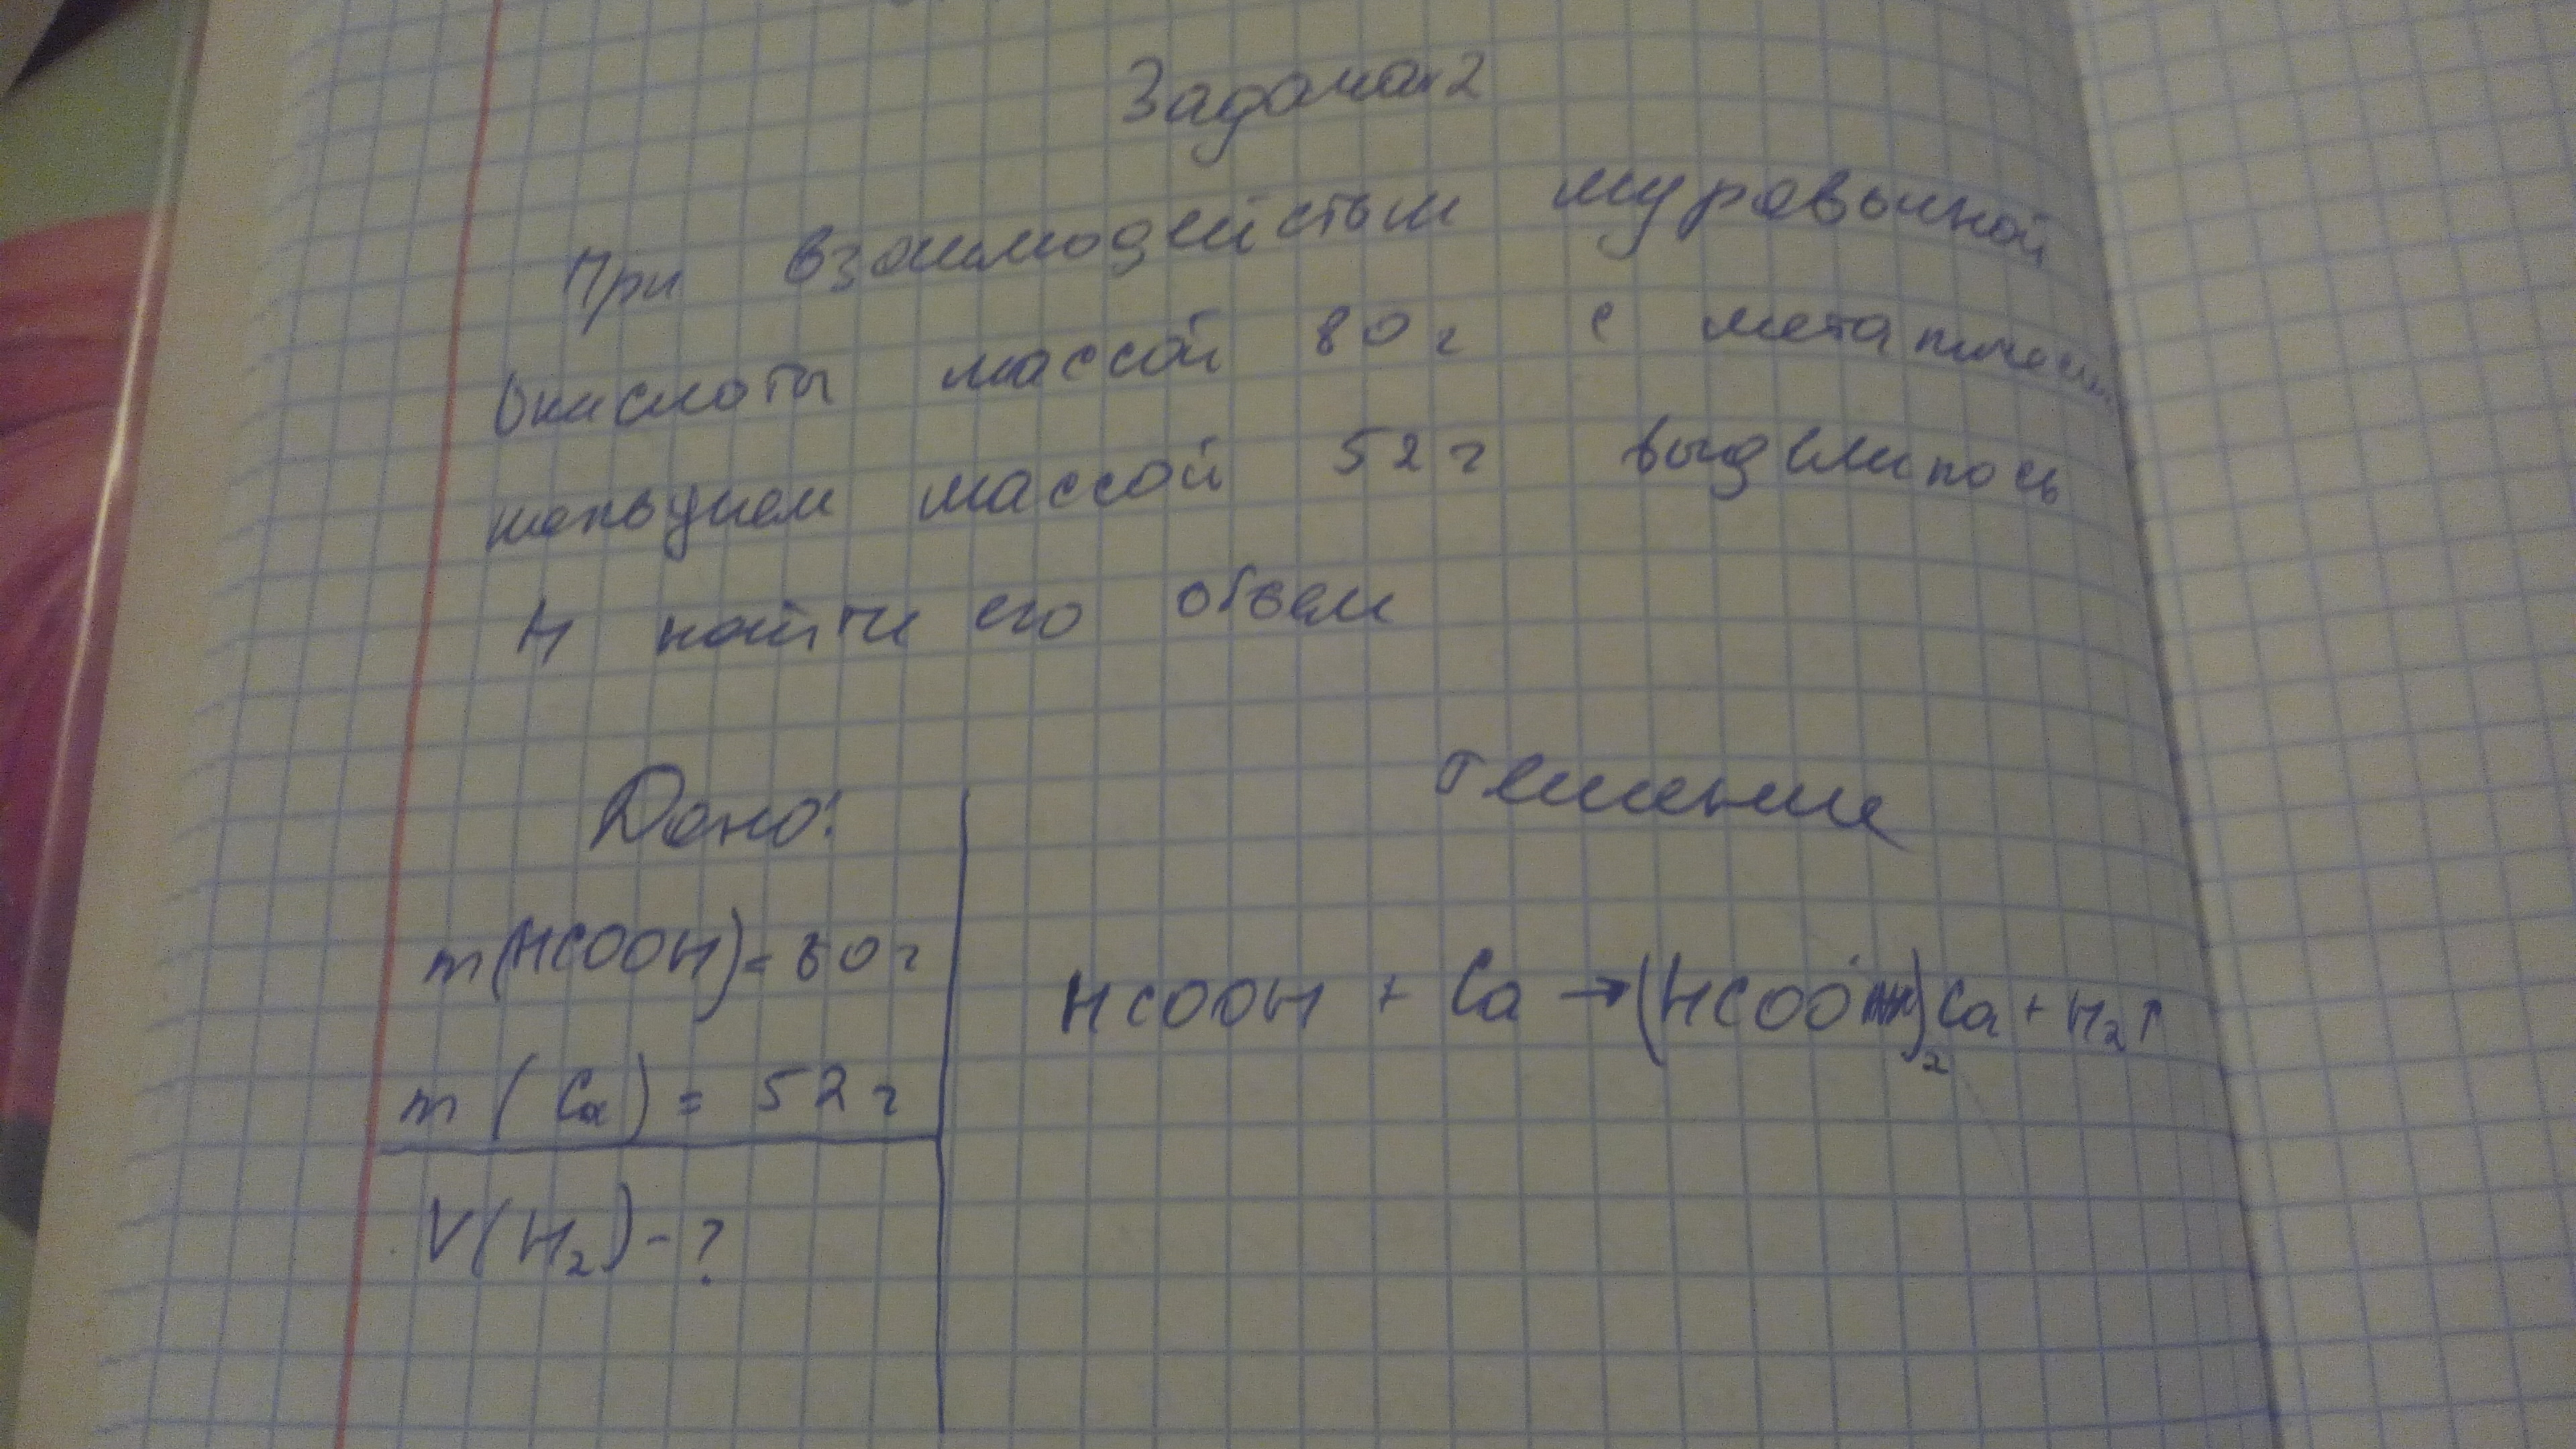 Задача 2
При взаимодействии муравьиной
кислоты массой 80 г с металическим
кальцием массой 52 г выделилось
H найти его объем
Дано:
Решение
m(HCOOH) = 80 г
HCOOH + Ca → (HCOO)₂Ca + H₂↑
m (Ca) = 52 г
V(H₂) - ?